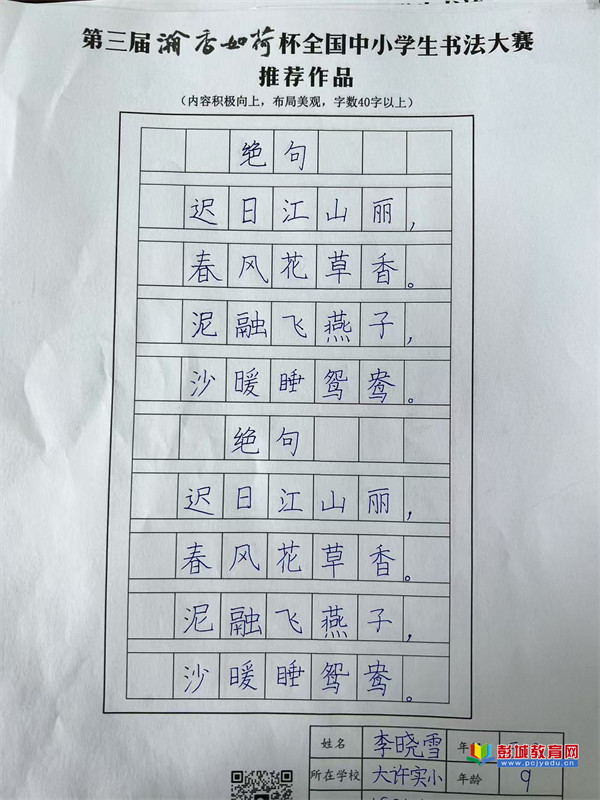 第三届瀚香如荷杯全国中小学生书法大赛
推荐作品
(内容积极向上，布局美观，字数40字以上)
绝句
迟日江山丽，
春风花草香。
泥融飞燕子，
沙暖睡鸳鸯。
绝句
迟日江山丽，
春风花草香。
泥融飞燕子，
沙暖睡鸳鸯。
姓名 李晓雪 年
所在学校 大许实小 年龄 9
彭城教育网
www.pcjyedu.cn